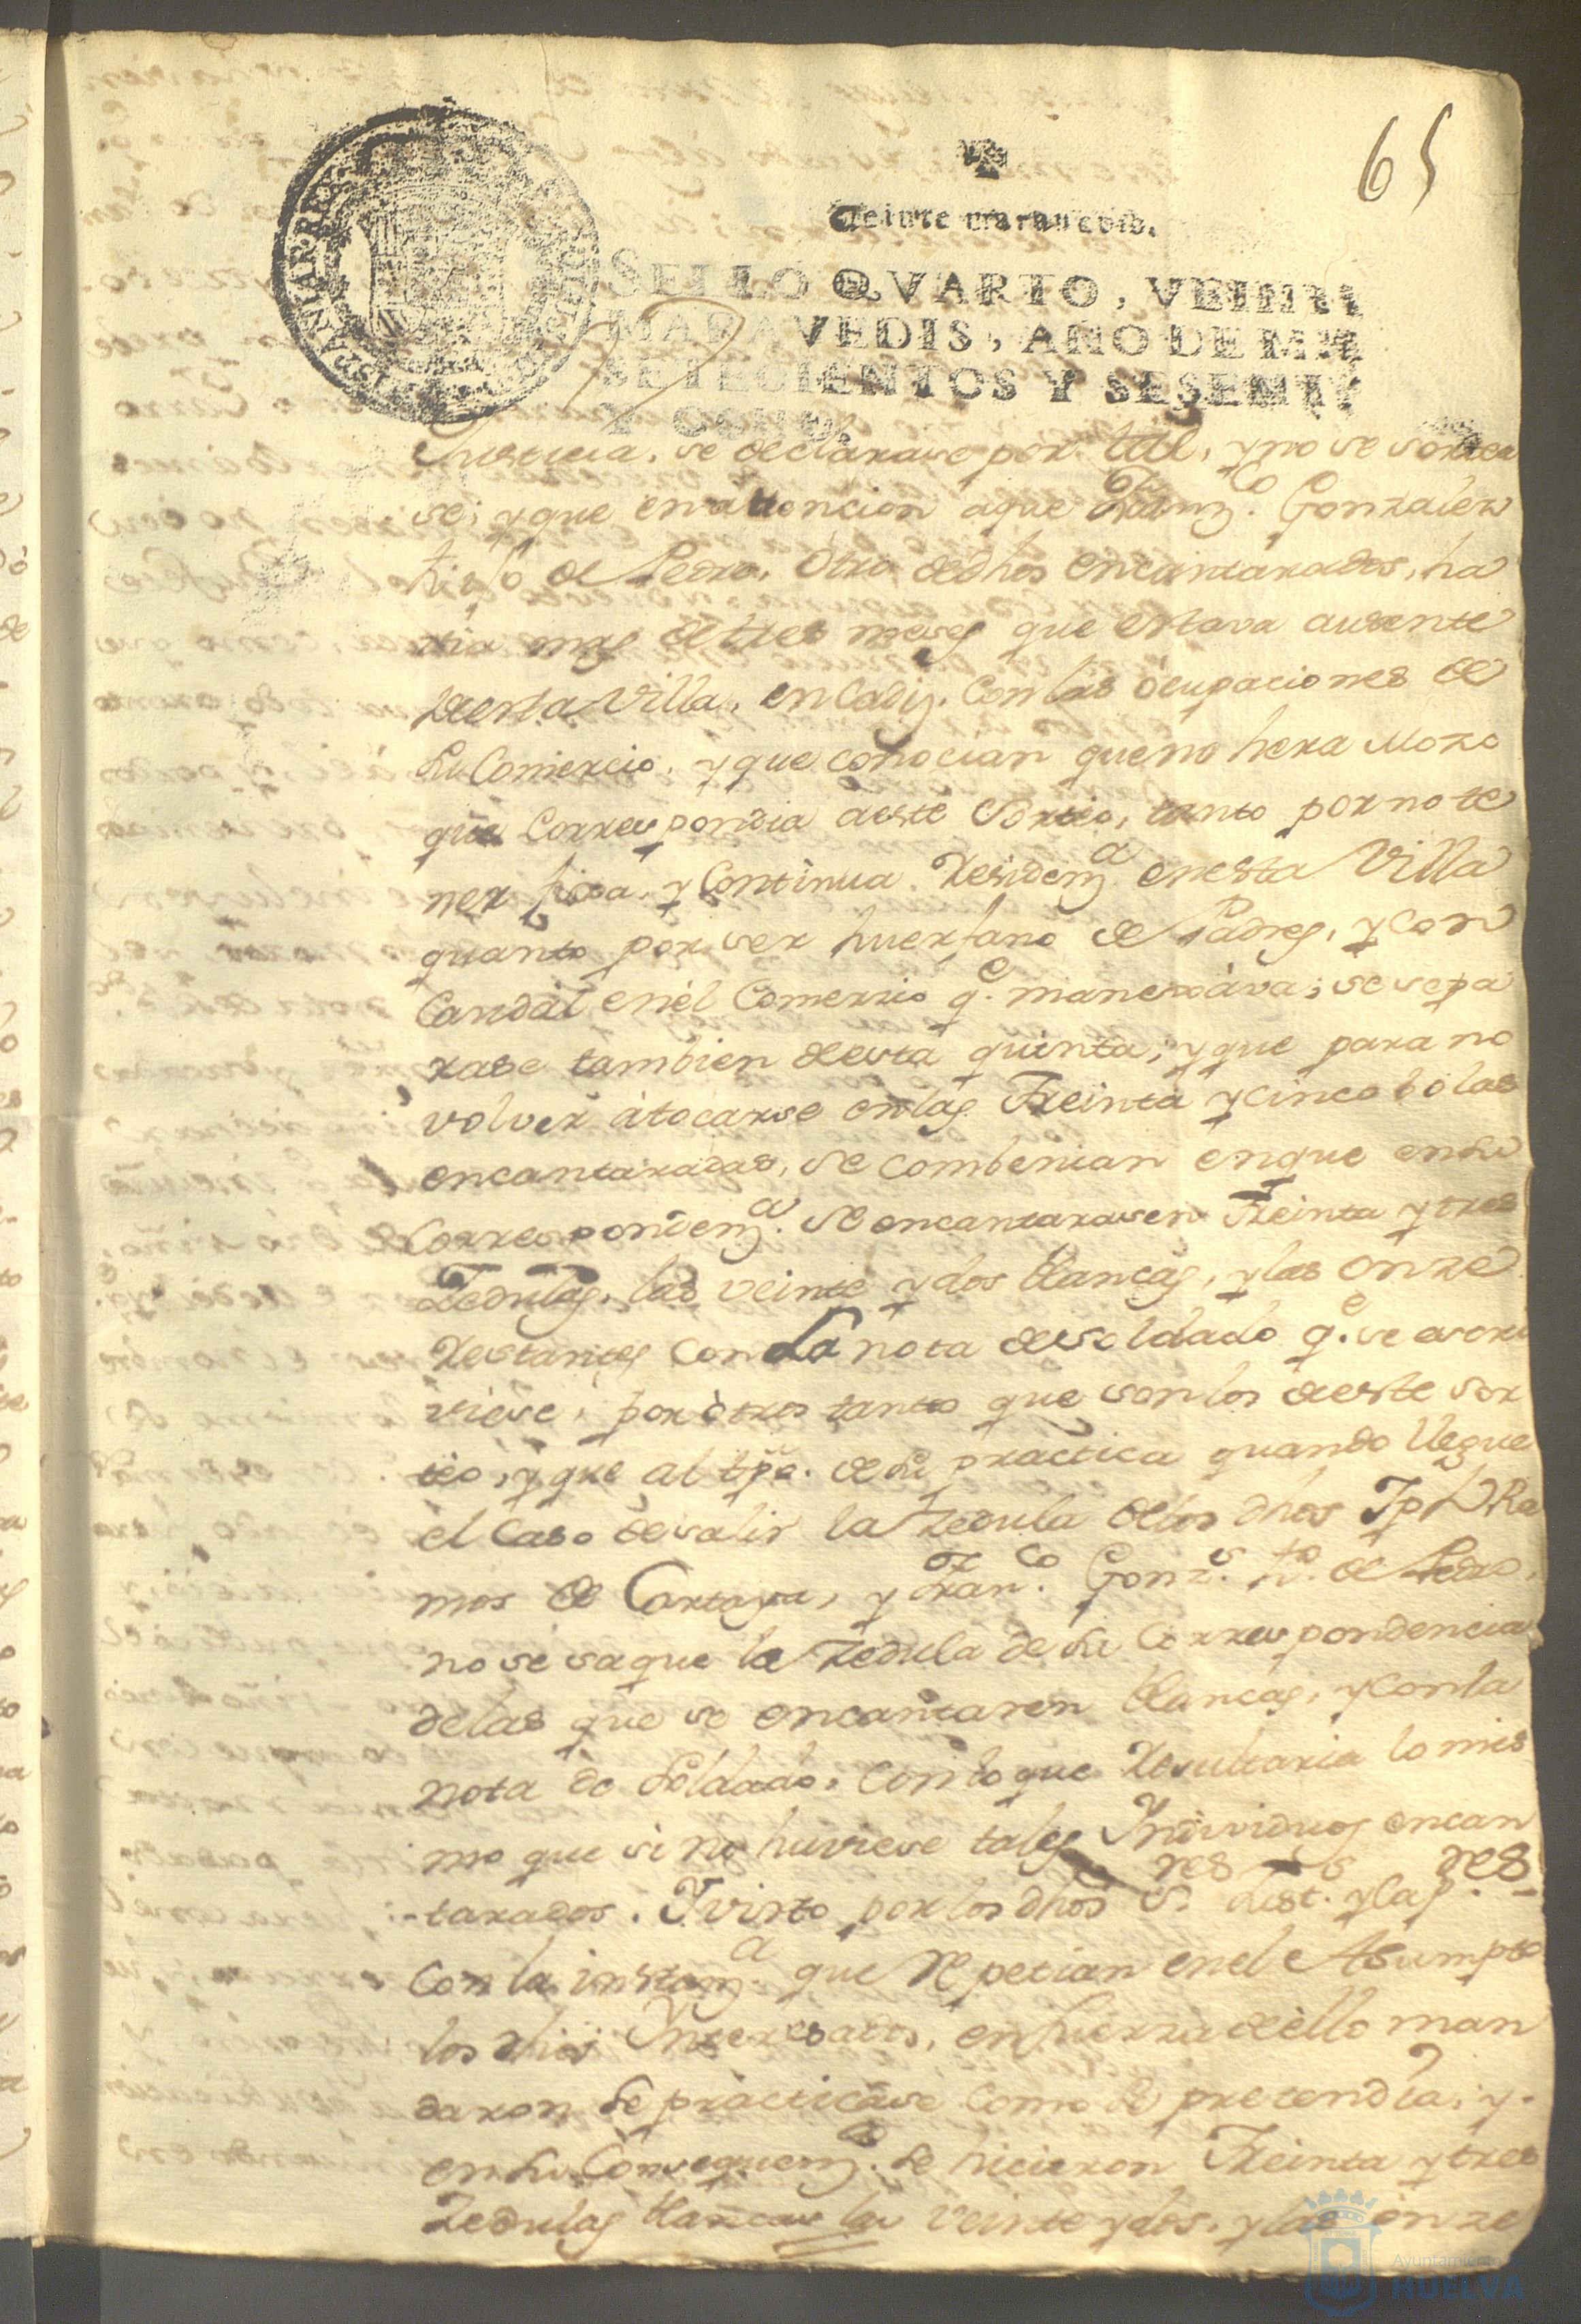 65
Veinte maravedis.
SELLO QVARTO, VEINTE
MARAVEDIS, AÑO DE MIL
SETECIENTOS Y SESENTA
Y OCHO.
Justicia, se declarase por tal, y no se sortea
se; y que en atencion aque Franz.co Gonzalez
hijo de Pedro, Otro dedhos encantarados, ha
via mas de tres meses que estava ausente
desta Villa, en Cadiz. Con las ocupaciones de
su Comercio, y que conocian que no hera Mozo
que Correspondia aeste Sorteo, tanto por no te
ner fixa, y Continua. Residenz.a en esta Villa
quanto por ser huerfano de Padres, y con
Caudal enel Comerzio q.e manexava; se sepa
rase tambien desta quinta; y que para no
volver atocarse en las Treinta y cinco bolas
encantaradas, se combenian en que en su
Correspondenz.a se encantarasen Treinta y tres
Zedulas, las veinte y dos blancas, y las onze
Restantes con La nota de soldado q.e se escri
viese, por otros tantos que son los deeste sor
teo, y que al tpo. de su practica quando llegue
el Caso de salir la Zedula delos dhos Jph Ra
mos de Cartaya, y Fran.co Gonz.s h.o de Pedro,
no se saque la Zedula de su Correspondencia
delas que se encantaren blancas, y con la
nota de Soldado, con lo que Resultaria lo mis
mo que si no huviese tales Individuos encan
tarados. Y visto por los dhos S.res Just.s y Cap.res
Con la instanz.a que Repetian enel Asumpto
los dhos Ynteresados, en fuerza deello man
daron se practicase como se pretendia, y
en su Consequenz.a se hicieron Treinta y tres
Zedulas blancas las veinte y dos, y las onze
Ayuntamiento de
HUELVA